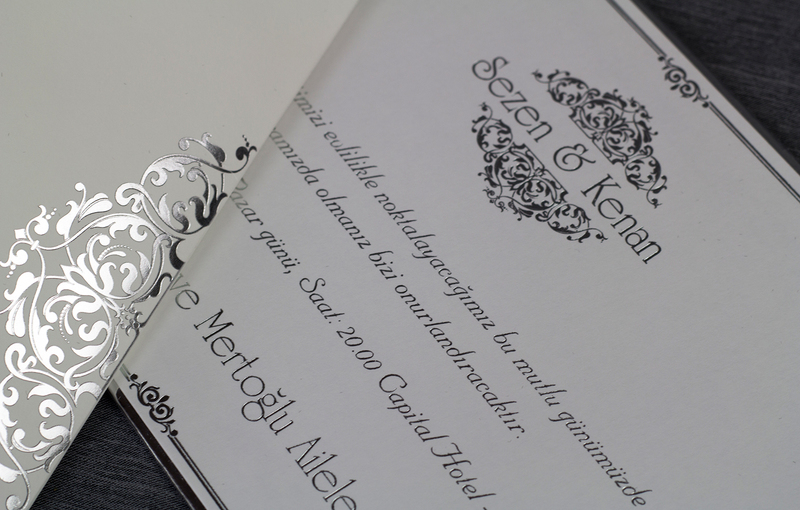 Sezen & Kenan
evlilikle noktalayacağımız bu mutlu günümüzde
olmanız bizi onurlandıracaktır.
Pazar günü, Saat: 20.00 Capital Hotel -
ve Mertoğlu Ailele